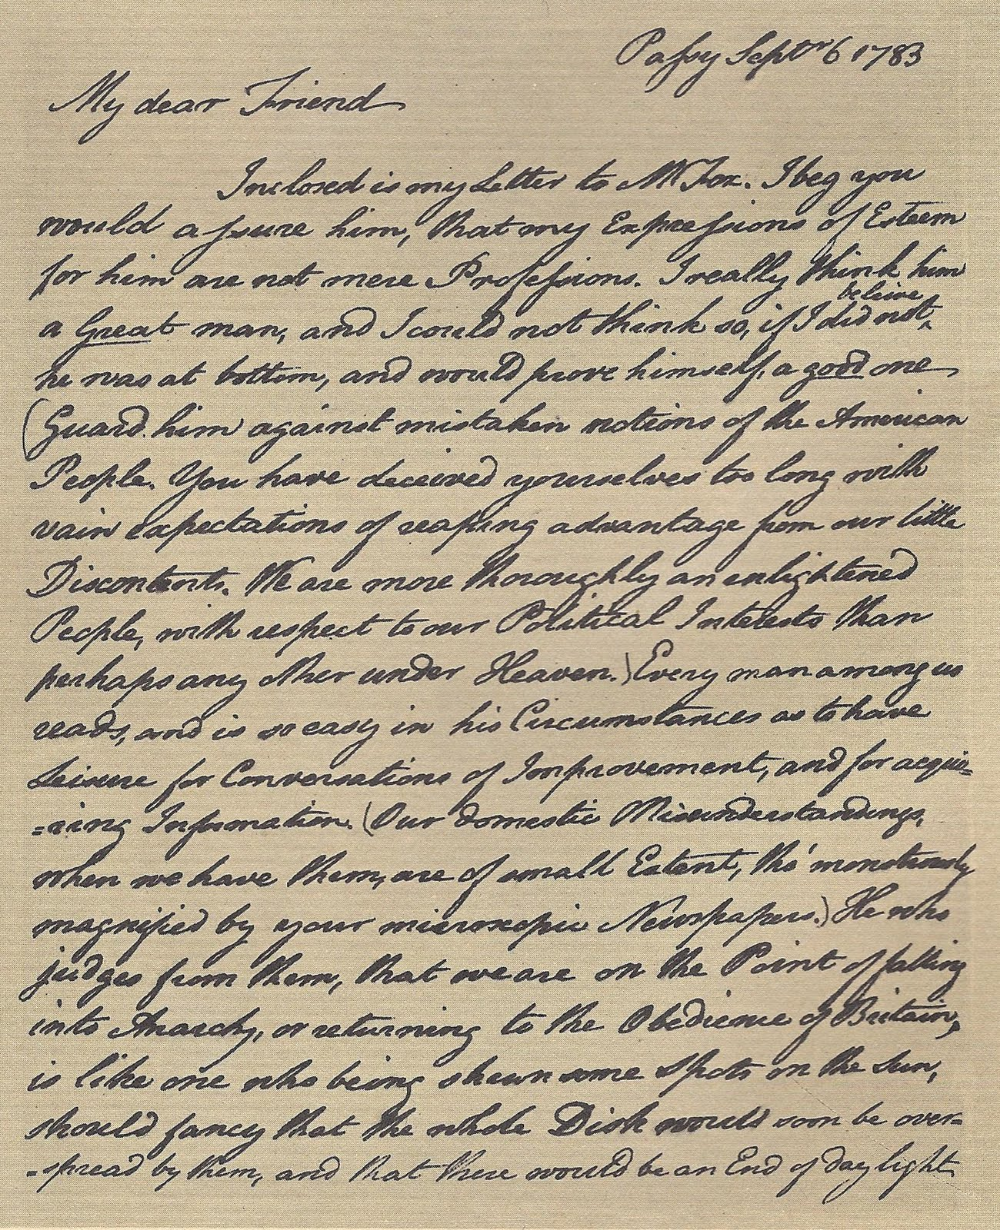 Passy Septr 6 1783
My dear Friend
Inclosed is my Letter to Mr Fox. I beg you
would assure him, that my Expressions of Esteem
for him are not mere Professions. I really think him
a Great man, and I could not think so, if I did not
beleive
he was at bottom, and would prove himself, a good one
(Guard him against mistaken notions of the American
People. You have deceived yourselves too long with
vain expectations of reaping advantage from our little
Discontents. We are more thoroughly an enlightened
People, with respect to our Political Interests than
perhaps any other under Heaven.) Every man among us
reads, and is so easy in his Circumstances as to have
Leisure for Conversations of Improvement, and for acqui=
=ring Information. (Our domestic Misunderstandings,
when we have them, are of small Extent, tho' monstrously
magnified by your microscopic Newspapers.) He who
judges from them, that we are on the Point of falling
into Anarchy, or returning to the Obedience of Britain,
is like one who being shewn some Spots on the Sun,
should fancy that the whole Disk would soon be over=
=spread by them, and that there would be an End of Day light